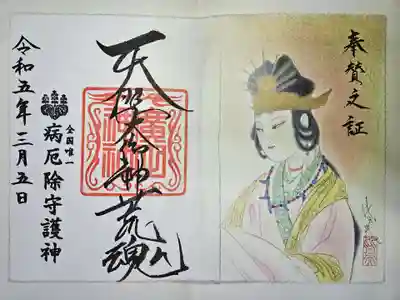 奉賛之証
天照大御神荒魂
全国唯一
病厄除守護神
令和五年三月五日